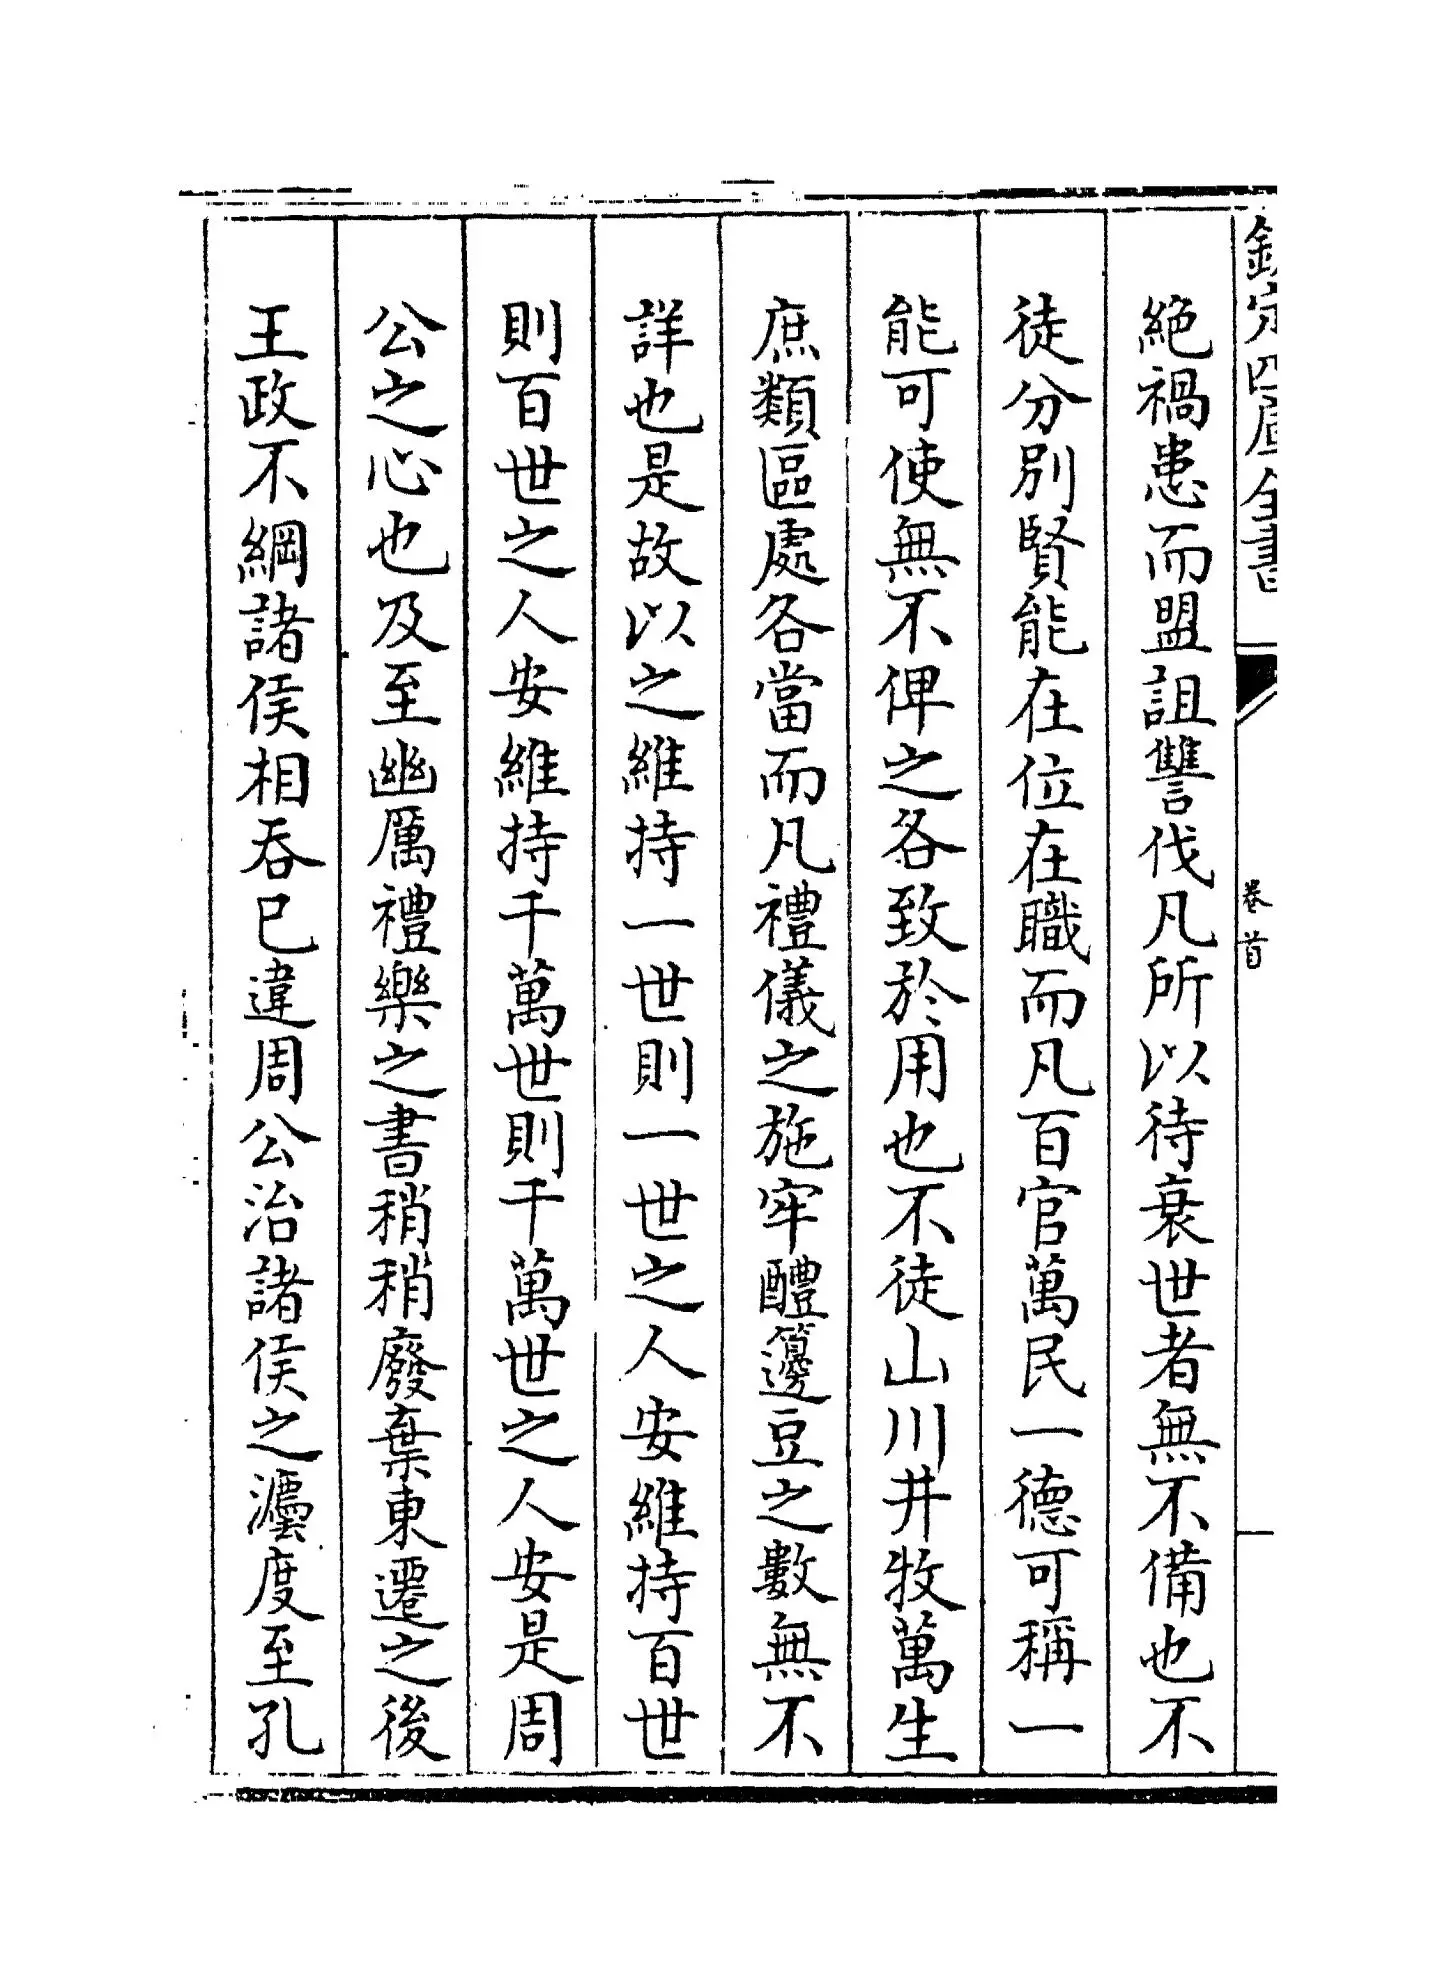 欽定四庫全書
卷首
絶禍患而盟詛讐伐凡所以待衰世者無不備也不
徒分別賢能在位在職而凡百官萬民一德可稱一
能可使無不俾之各致於用也不徒山川井牧萬生
庶類區處各當而凡禮儀之施牢醴籩豆之數無不
詳也是故以之維持一世則一世之人安維持百世
則百世之人安維持千萬世則千萬世之人安是周
公之心也及至幽厲禮樂之書稍稍廢棄東遷之後
王政不綱諸侯相吞已違周公治諸侯之灋度至孔